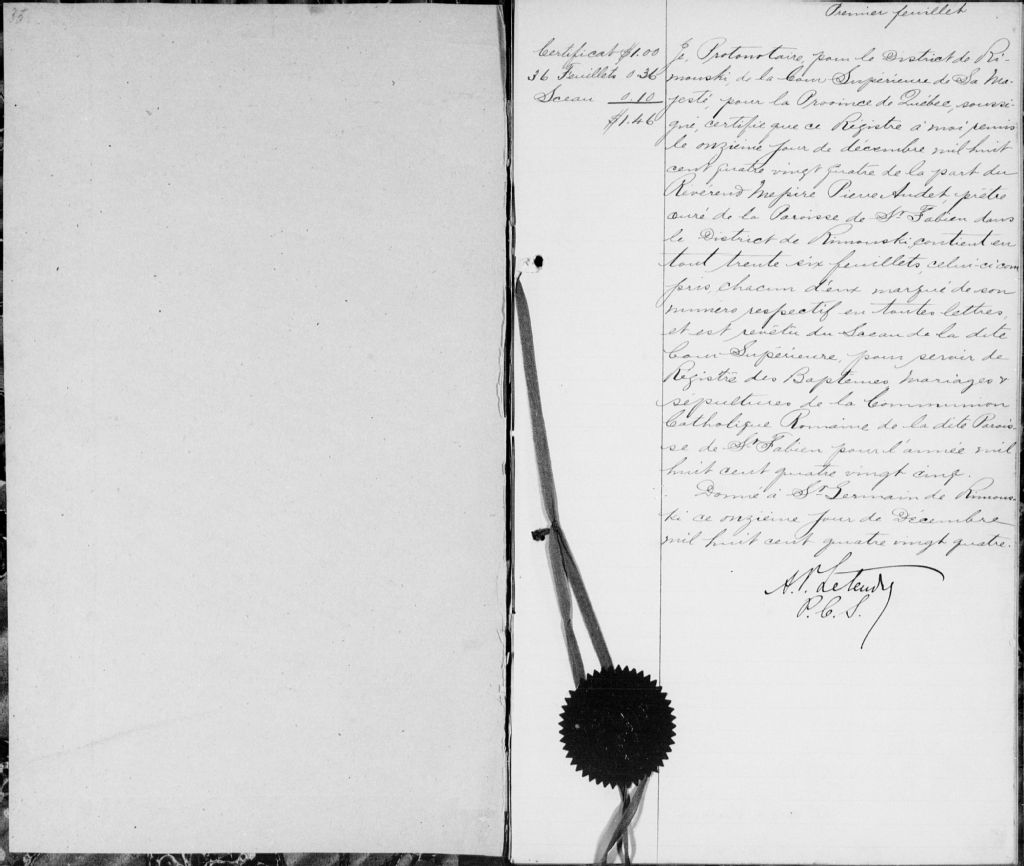 35
Premier feuillet
Certificat $1.00
36 Feuillets 0.36
Sceau 0.10
$1.46
Je, Protonotaire, pour le District de Ri-
mouski, de la Cour Supérieure de Sa Ma-
jesté, pour la Province de Québec, soussi-
gné, certifie que ce Régistre à moi remis
le onzième jour de décembre mil huit
cent quatre vingt quatre de la part du
Révérend Messire Pierre Audet, prêtre
curé de la Paroisse de St Fabien dans
le District de Rimouski, contient en
tout trente six feuillets, celui-ci com
pris, chacun d'eux marqué de son
numéro respectif en toutes lettres,
et est revêtu du Sceau de la dite
Cour Supérieure, pour servir de
Régistre des Baptemes, Mariages &
sépultures de la Communion
Catholique Romaine de la dite Parois-
se de St Fabien pour l'année mil
huit cent quatre vingt cinq.
Donné à St Germain de Rimous-
ki ce onzième jour de Décembre
mil huit cent quatre vingt quatre.
A. P. Letendre
P. C. S.